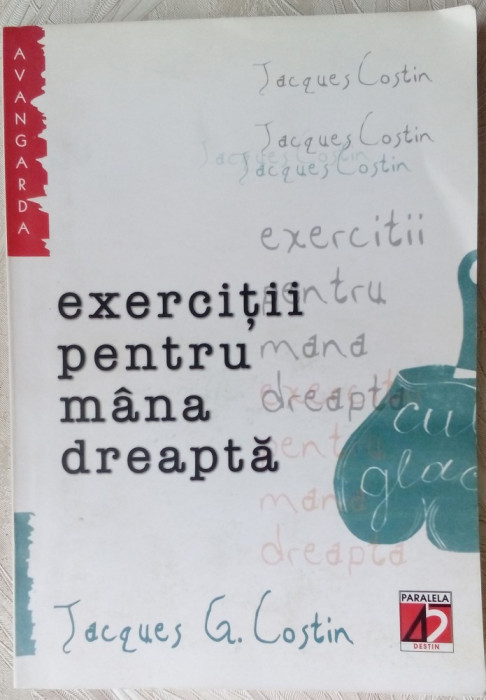 AVANGARDA
Jacques Costin
Jacques Costin
Jacques Costin
Jacques Costin
exercitii
pentru
mana
dreapta
exerciții
pentru
mâna
dreaptă
pentru
mana
dreapta
Jacques G. Costin
PARALELA
45
DESTIN